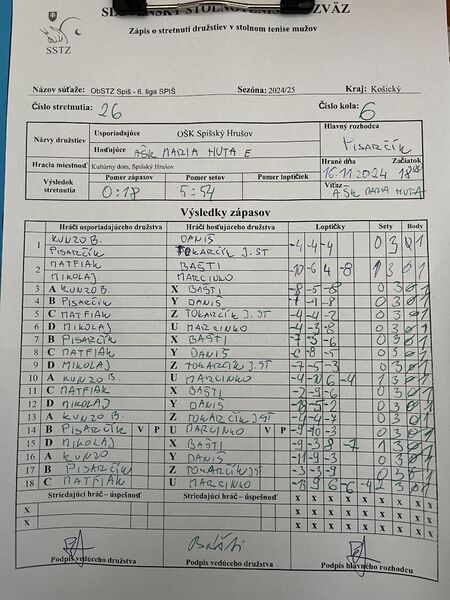 SLOVENSKÝ STOLNOTENISOVÝ ZVÄZ
Zápis o stretnutí družstiev v stolnom tenise mužov
SSTZ
Názov súťaže: ObSTZ Spiš - 6. liga SPIŠ Sezóna: 2024/25 Kraj: Košický
Číslo stretnutia: 26 Číslo kola: 6
Názvy družstiev Usporiadajúce OŠK Spišský Hrušov Hlavný rozhodca
Hosťujúce AŠK MARIA HUTA E PISARČÍK
Hracia miestnosť Kultúrny dom, Spišský Hrušov Hrané dňa Začiatok
Výsledok stretnutia Pomer zápasov Pomer setov Pomer loptičiek 16.11.2024
0:18 5:54 Víťaz AŠK MARIA HUTA
Výsledky zápasov
Hráči usporiadajúceho družstva Hráči hosťujúceho družstva Loptičky Sety Body
1 KUNZO B. DANIŠ -4 -4 -4 0 3 0 1
PISARČÍK TOKARČÍK J. ST
2 MATFIAK BAŠTI -10 -6 4 -8 1 3 0 1
MIKOLAJ MARCINKO
3 A KUNZO B. X BAŠTI -8 -5 -8 0 3 0 1
4 B PISARČÍK Y DANIŠ -7 -9 -8 0 3 0 1
5 C MATFIAK Z TOKARČÍK J. ST -4 -4 -2 0 3 0 1
6 D MIKOLAJ U MARCINKO -4 -3 -8 0 3 0 1
7 B PISARČÍK X BAŠTI -7 -3 -6 0 3 0 1
8 C MATFIAK Y DANIŠ -6 -8 -5 0 3 0 1
9 D MIKOLAJ Z TOKARČÍK J. ST -7 -5 -3 0 3 0 1
10 A KUNZO B. U MARCINKO 1 3 0 1
11 C MATFIAK X BAŠTI -2 -9 -6 0 3 0 1
12 D MIKOLAJ Y DANIŠ 0 3 0 1
13 A KUNZO B. Z TOKARČÍK J. ST 0 3 0 1
14 B PISARČÍK V P U MARCINKO V P -9 -10 -3 0 3 0 1
15 D MIKOLAJ X BAŠTI -9 -3 8 -7 1 3 0 1
16 A KUNZO Y DANIŠ -11 -9 -3 0 3 0 1
17 B PISARČÍK Z TOKARČÍK J. ST -3 -3 -9 0 3 0 1
18 C MATFIAK U MARCINKO 9 6 -6 -4 2 3 0 1
Striedajúci hráč – úspešnosť Striedajúci hráč – úspešnosť x x x x x x x x x
X X x x x x x x x x x
X X x x x x x x x x x
Bašti
Podpis vedúceho družstva Podpis vedúceho družstva Podpis hlavného rozhodcu